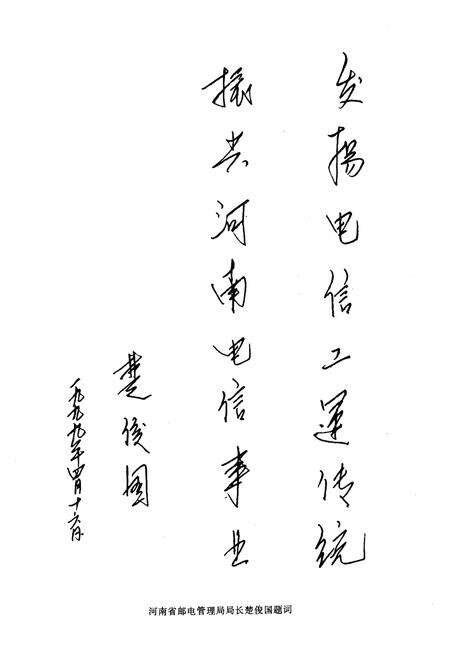 发揚电信工運传统
振兴河南电信事业
楚俊国
一九九九年四月十六日
河南省邮电管理局局长楚俊国题词